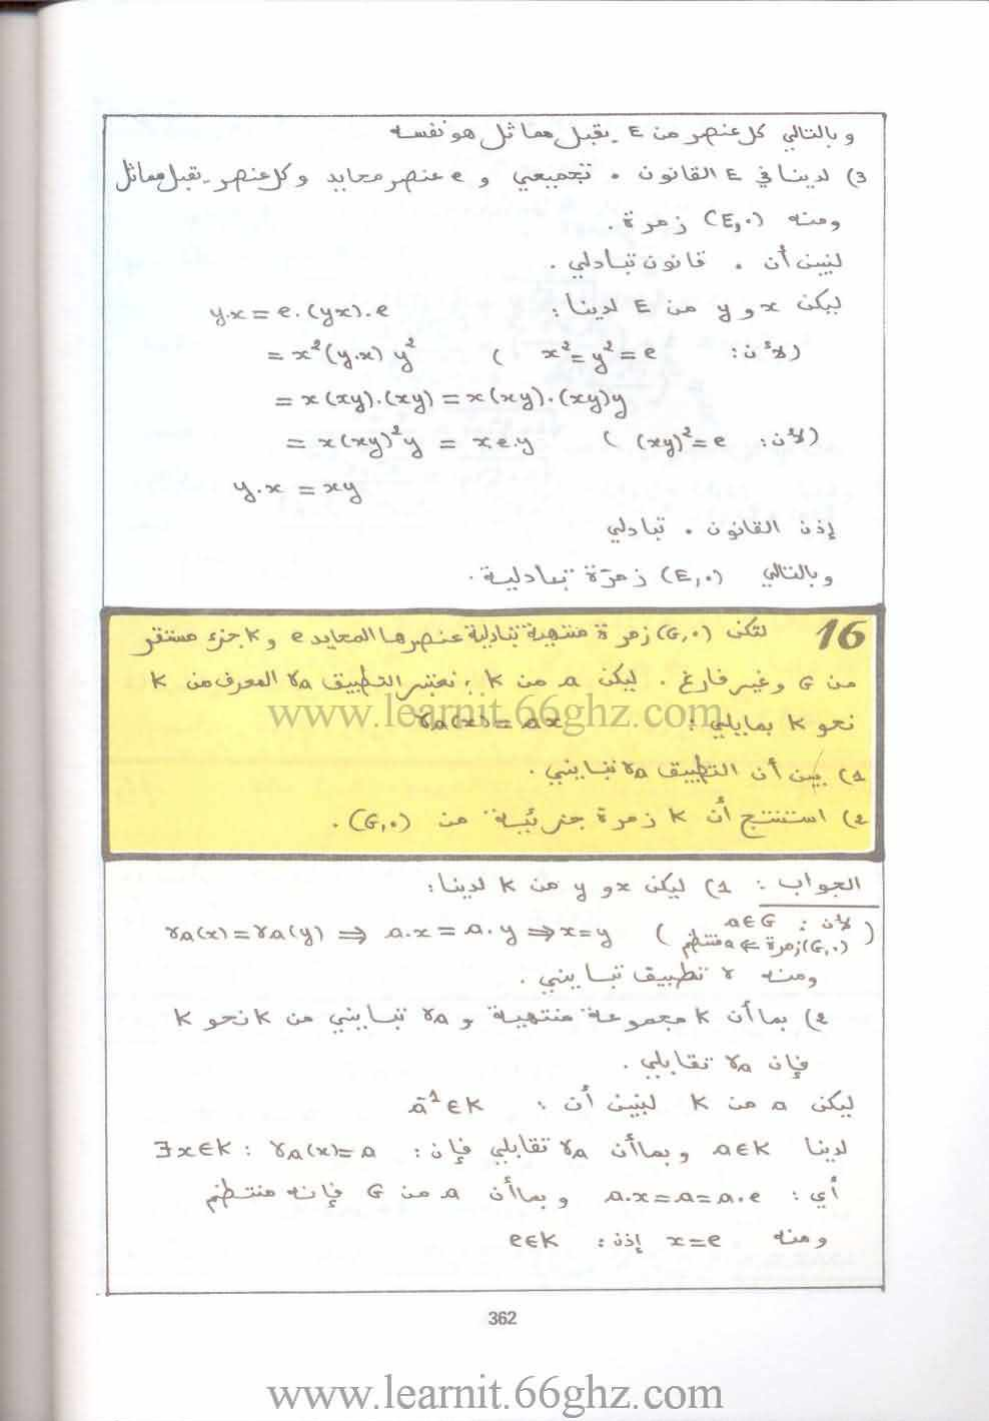 وبالتالي كل عنصر من E يقبل مماثل هو نفسه
3) لدينا في E القانون . تجميعي و e عنصر محايد و كل عنصر يقبل مماثل
ومنه (E,.) زمرة .
لنبين أن . قانون تبادلي .
ليكن x و y من E لدينا :
y.x = e.(yx).e
= x²(y.x) y² ( لأن : x² = y² = e )
= x(xy).(xy) = x(xy).(xy)y
= x(xy)²y = xe.y ( لأن : (xy)² = e )
y.x = xy
إذن القانون . تبادلي
وبالتالي (E,.) زمرة تبادلية .
16 لتكن (G,.) زمرة منتهية تبادلية عنصرها المحايد e و K جزء مستقر
من G وغير فارغ . ليكن a من K ; نعتبر التطبيق γa المعرف من K
نحو K بمايلي : γa(x) = ax
www.learnit.66ghz.com
1) بين أن التطبيق γa تبايني .
2) استنتج أن K زمرة جزئية من (G,.) .
الجواب : 1) ليكن x و y من K لدينا :
γa(x) = γa(y) ⇒ a.x = a.y ⇒ x = y ( لأن : a∈G
(G,.) زمرة ⇒ a منتظم )
ومنه γ تطبيق تبايني .
2) بما أن K مجموعة منتهية و γa تبايني من K نحو K
فإن γa تقابلي .
ليكن a من K لنبين أن : a⁻¹ ∈ K
لدينا a∈K وبما أن γa تقابلي فإن : ∃x∈K : γa(x) = a
أي : a.x = a = a.e وبما أن a من G فإنه منتظم
ومنه x = e إذن : e∈K
362
www.learnit.66ghz.com